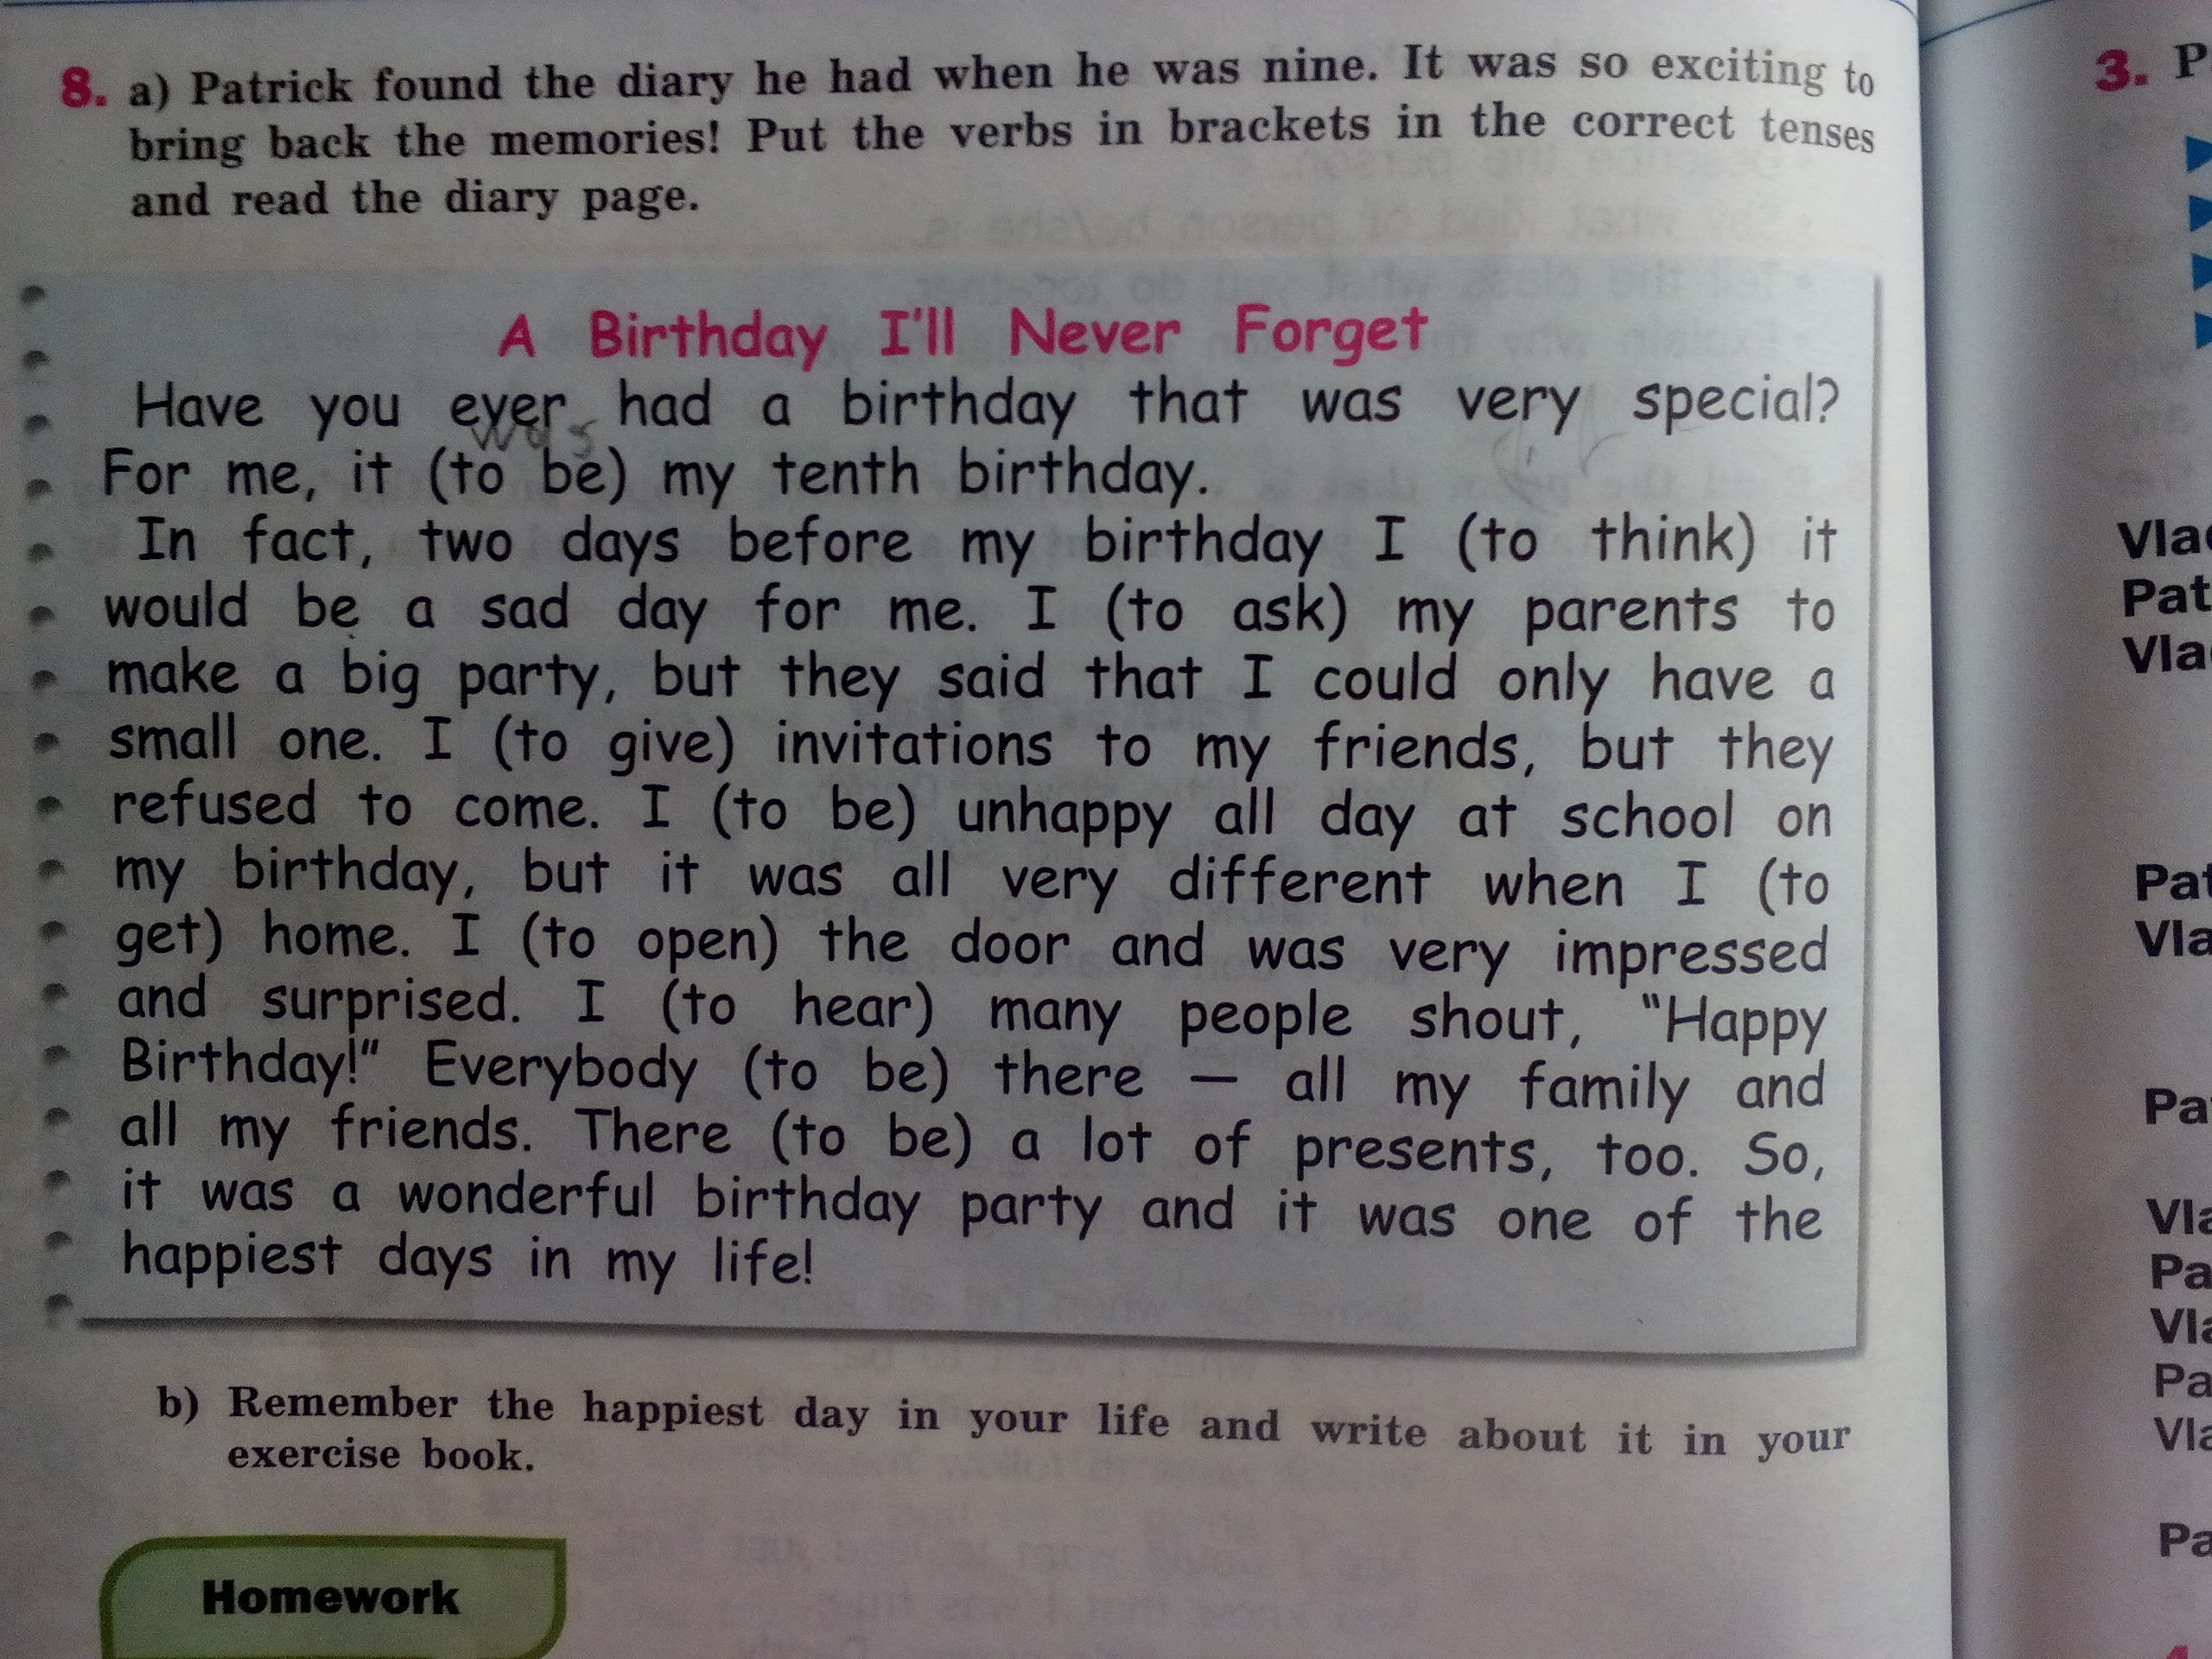 8. a) Patrick found the diary he had when he was nine. It was so exciting to
bring back the memories! Put the verbs in brackets in the correct tenses
and read the diary page.
A Birthday I'll Never Forget
Have you ever had a birthday that was very special?
was
For me, it (to be) my tenth birthday.
In fact, two days before my birthday I (to think) it
would be a sad day for me. I (to ask) my parents to
make a big party, but they said that I could only have a
small one. I (to give) invitations to my friends, but they
refused to come. I (to be) unhappy all day at school on
my birthday, but it was all very different when I (to
get) home. I (to open) the door and was very impressed
and surprised. I (to hear) many people shout, "Happy
Birthday!" Everybody (to be) there — all my family and
all my friends. There (to be) a lot of presents, too. So,
it was a wonderful birthday party and it was one of the
happiest days in my life!
b) Remember the happiest day in your life and write about it in your
exercise book.
Homework
3.